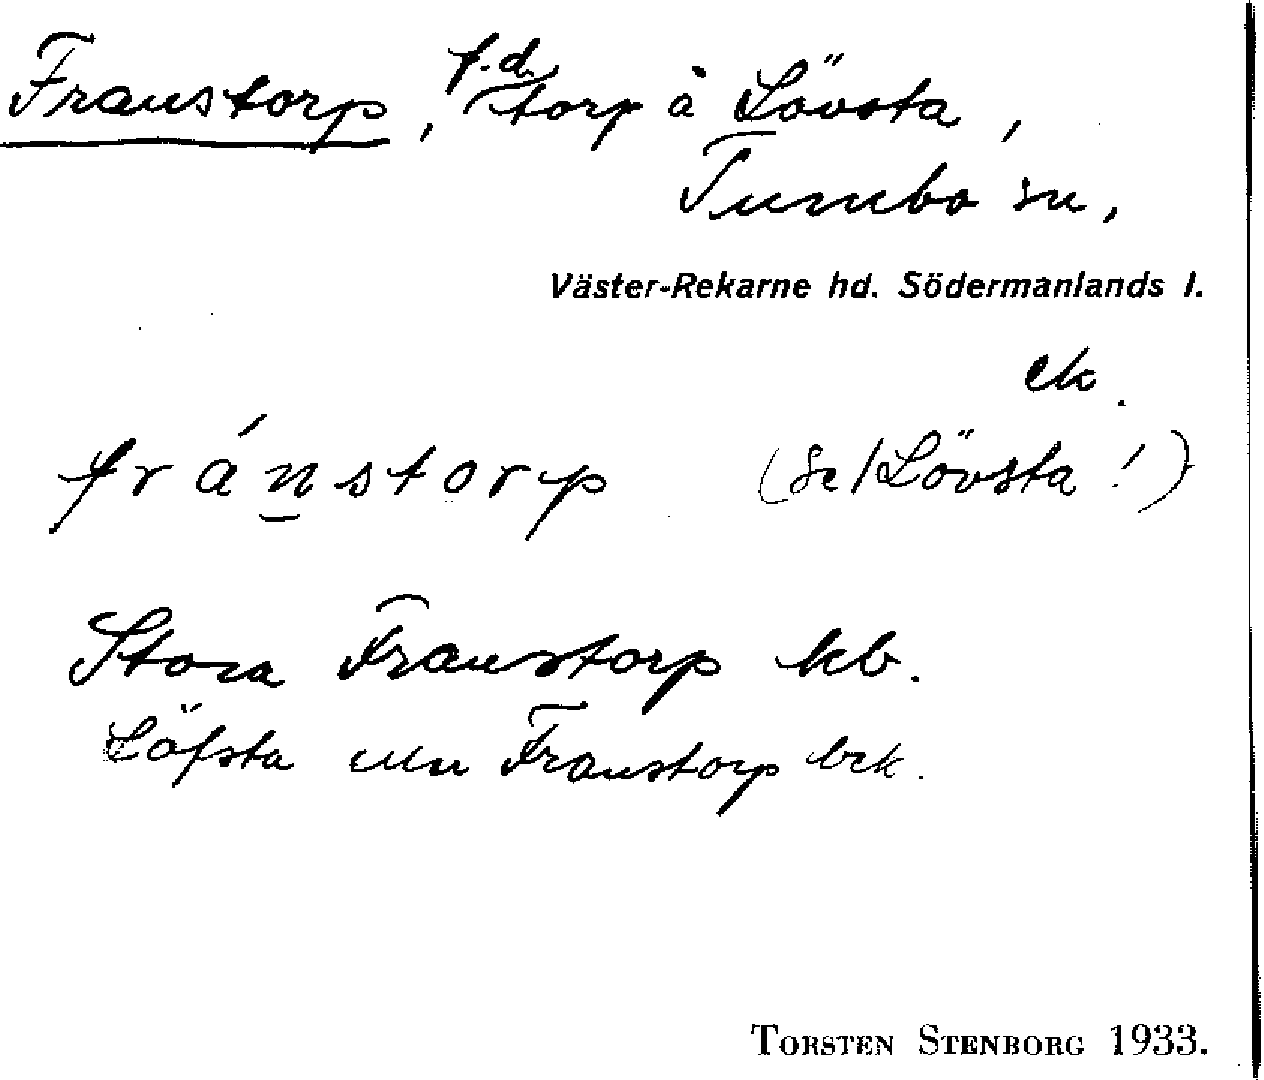 Franstorp, f.d. torp å Lövsta,
Tumbo sn,
Väster-Rekarne hd. Södermanlands l.
ek.
fránstorp (Se/Lövsta!)
Stora Franstorp kb.
Löfsta Franstorp bek.
TORSTEN STENBORG 1933.